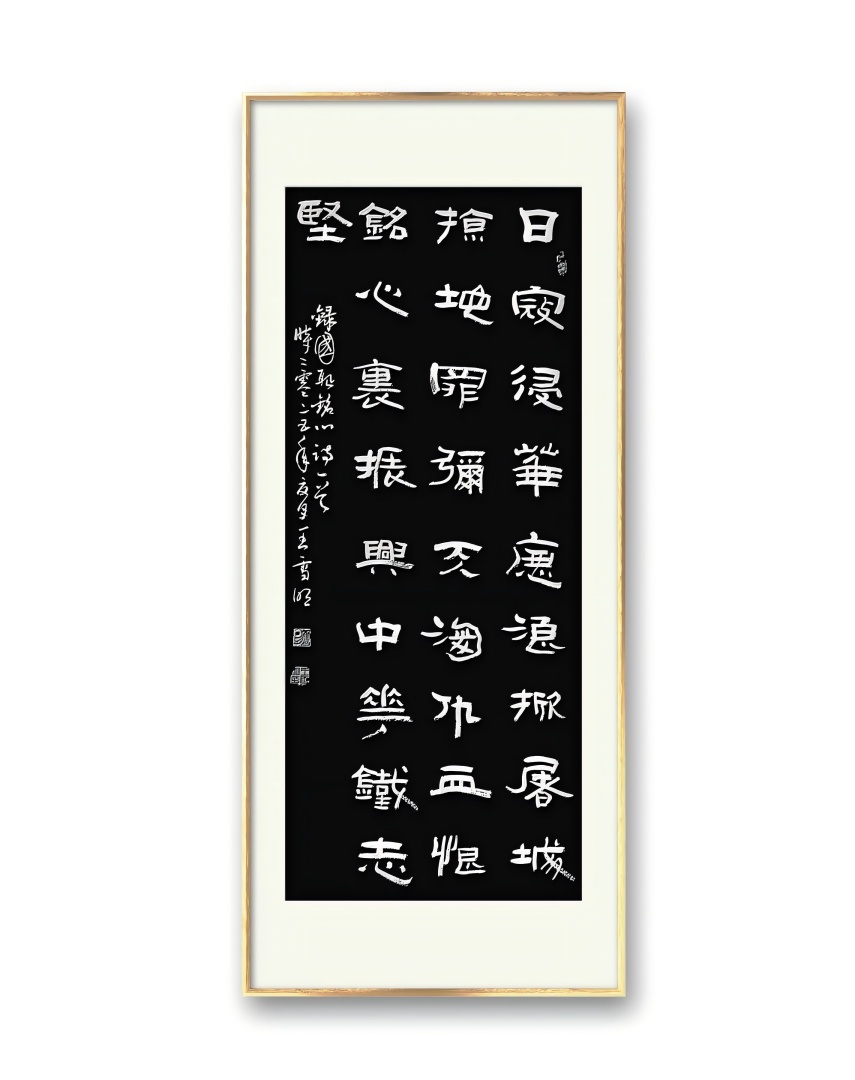 日寇侵華浪掀屠城
掠地罪彌天海仇血恨
銘心裏振興中華鐵志
堅
錄國恥銘心詩一首
時二零二五年夏月王雪明